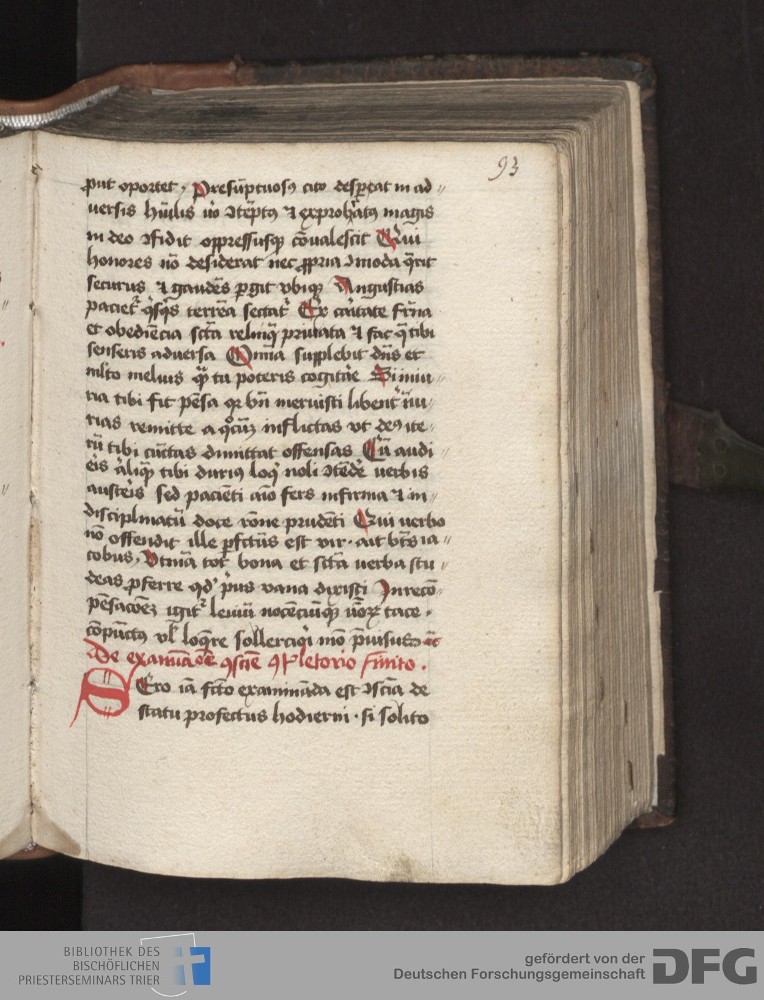 93
put oportet. Presūptuosꝯ cito despeat in ad〃
versis hūilis ūo ꝯtēptꝯ ⁊ exprobatꝯ magis
in deo ꝯfidit oppressusqꝫ cōualescit Qui
honores nō desiderat nec ꝓpria ꝯmoda q̄rit
securus ⁊ gaudēs pgit vbiqꝫ Angustias
paciet᷑ q̄sqs terrēa sectat᷑ Ex caitate frn̄a
et obediēcia scīa relinq̄ priuata ⁊ fac q̄ tibi
senseris aduersa Omīa supplebit dn̄s et
mlto melius qͣ̄ tu poteris cogitae Si iniu
ria tibi fit pēsa qꝛ bn̄ meruisti libent᷑ iniu〃
rias remitte a qͦcūqꝫ inflictas vt deꝯ ite〃
rū tibi cūctas dimittat offensas Cū audi
eis aliqͣ tibi duriꝯ loq̄ noli ꝯtēdē verbis
austeis sed paciēti aīo fers infirma ⁊ in〃
disciplinatū doce rōne prudēti Qui verbo
nō offendit ille pfctūs est vir. ait bt̄s ia〃
cobus. Vtinā tot bona et scīa uerba stu〃
deas ꝓferre qd̓ p̄us vana dixisti In recō〃
pēsacōeꝫ igit᷑ leuiū nocēciūqꝫ ūoꝝ tace.
cōpūctꝯ vl̓ loqre sollerciqi mō p̄uisū
De examīacōe ꝯsciē ꝯpletorio finito.
SEro iā fcō examināda est ꝯsciā de
statu profectus hodierni. si solito
BIBLIOTHEK DES
BISCHÖFLICHEN
PRIESTERSEMINARS TRIER
gefördert von der
Deutschen Forschungsgemeinschaft
DFG